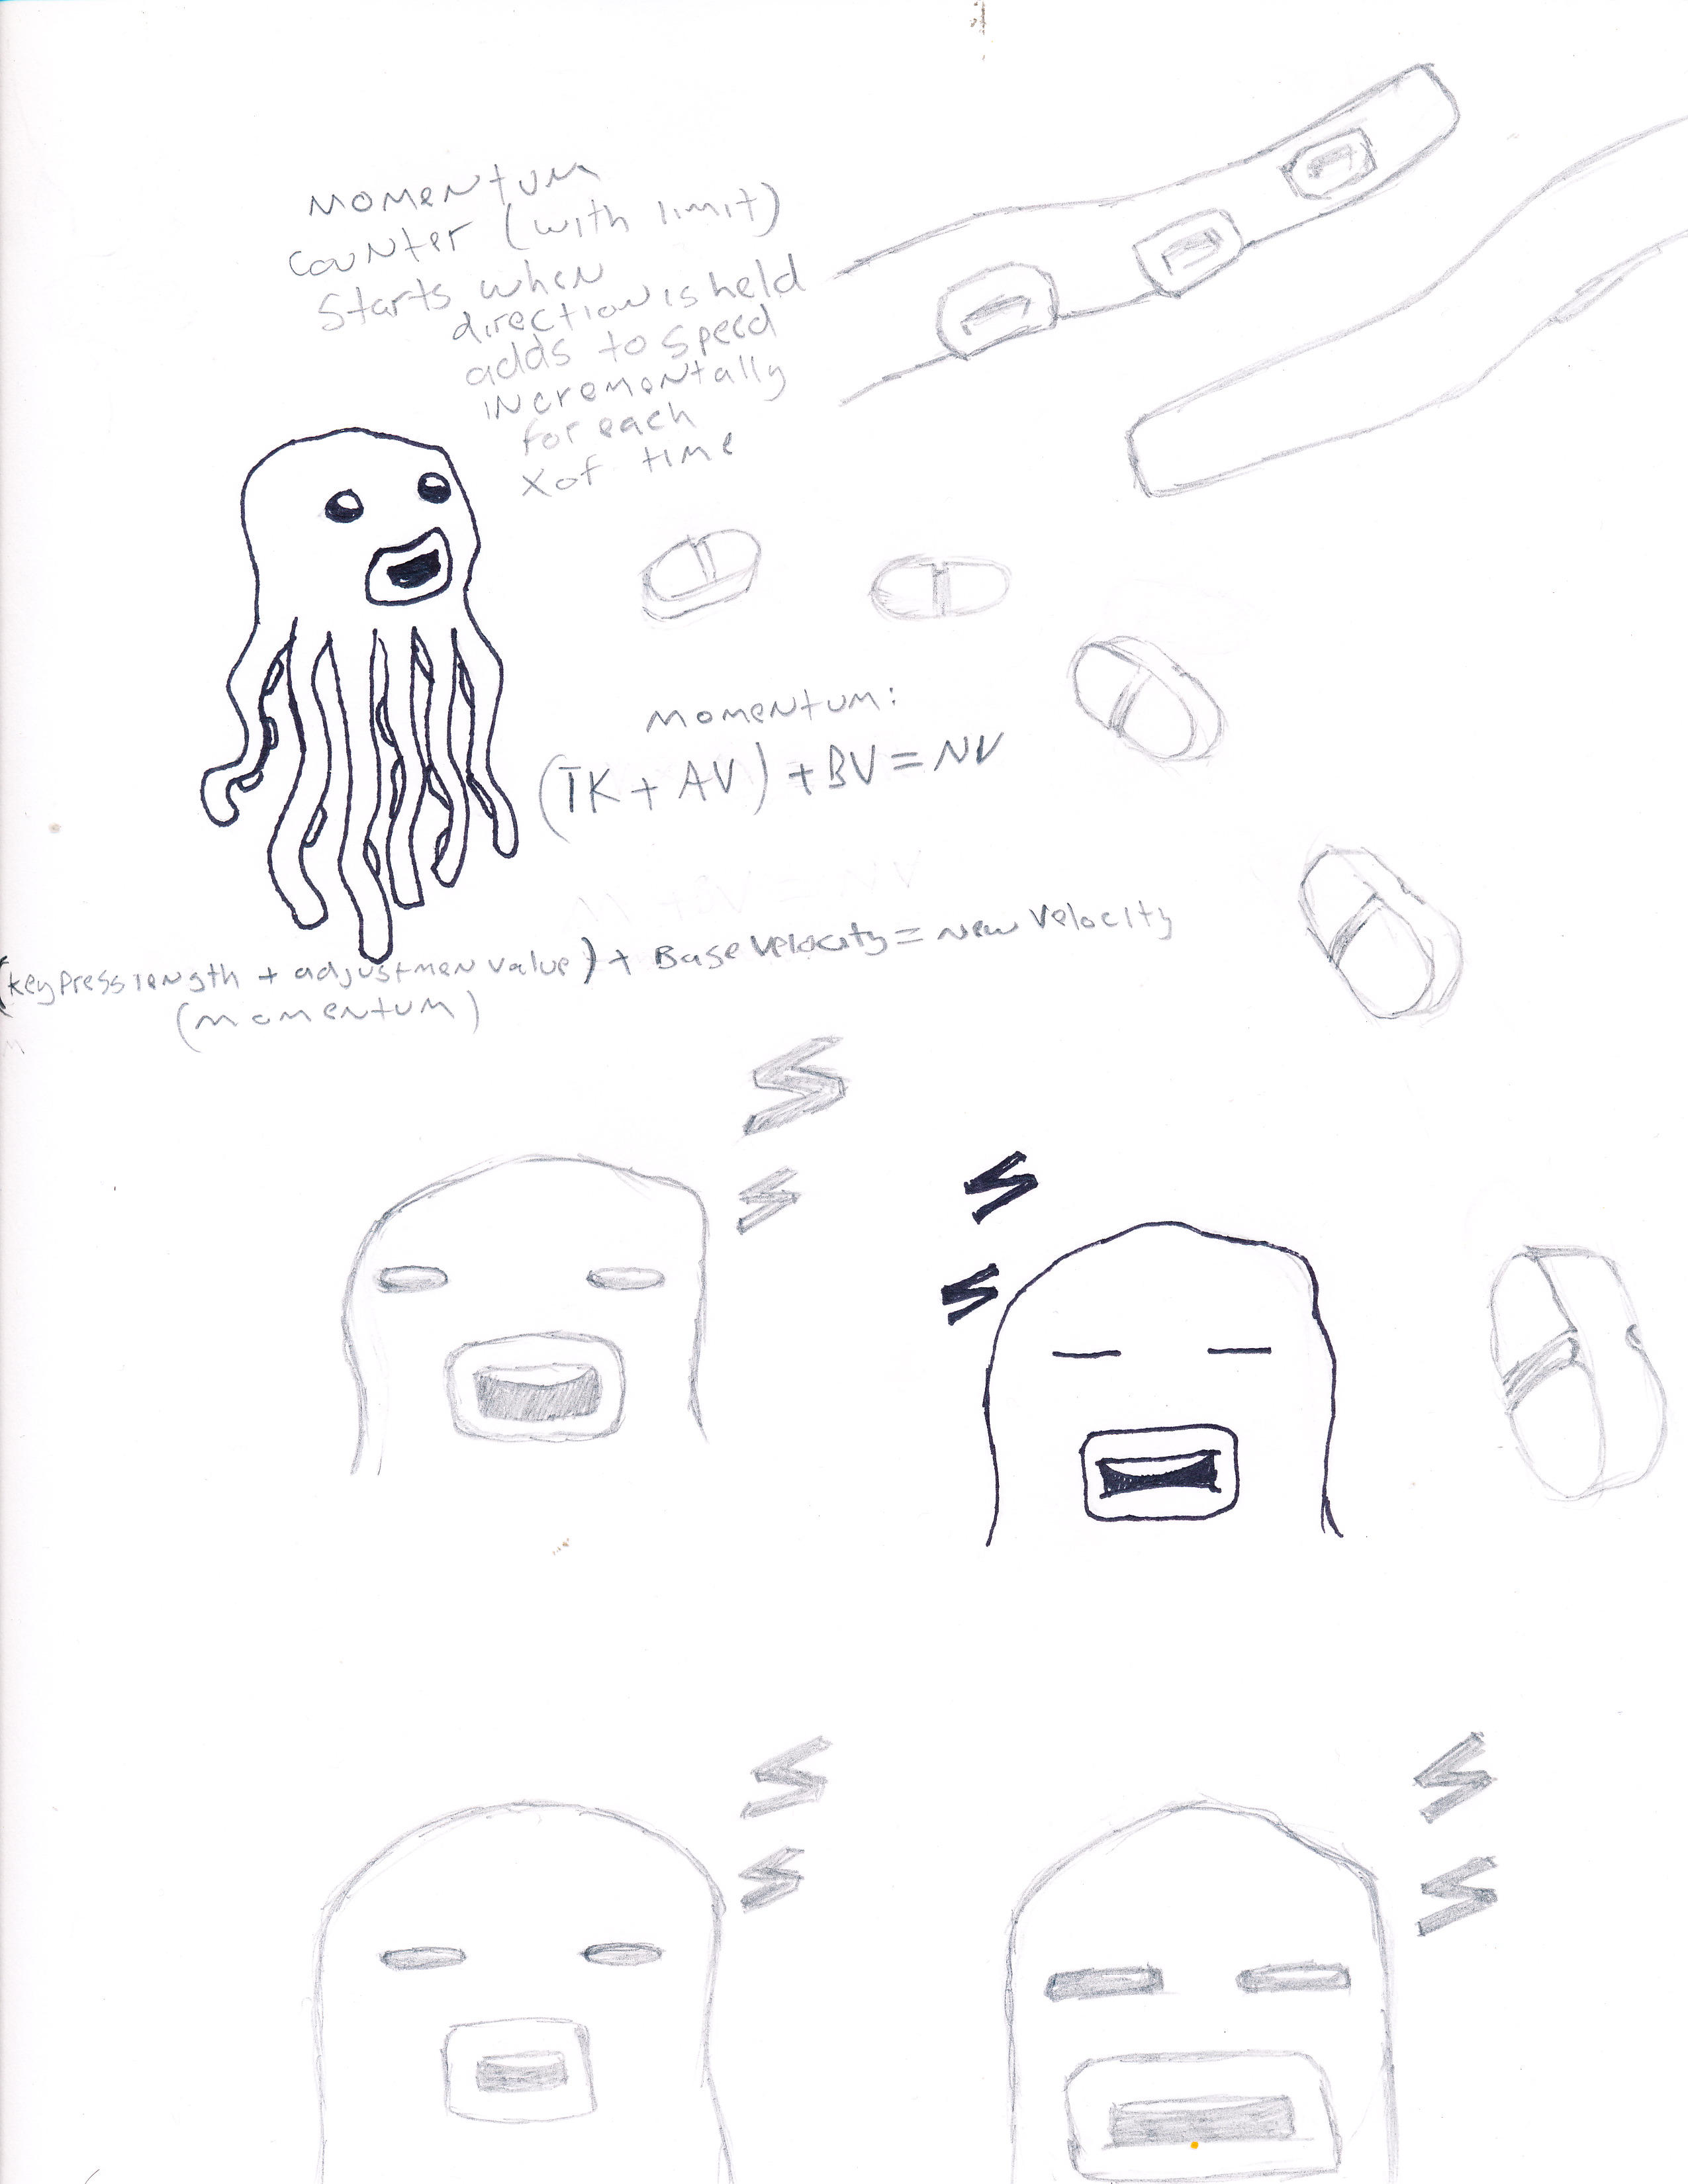 momentum
counter (with limit)
Starts when
direction is held
adds to speed
incrementally
for each
X of time
momentum:
(TK + AV) + BV = NV
(key press length + adjustmen value) + Base Velocity = New Velocity
(momentum)